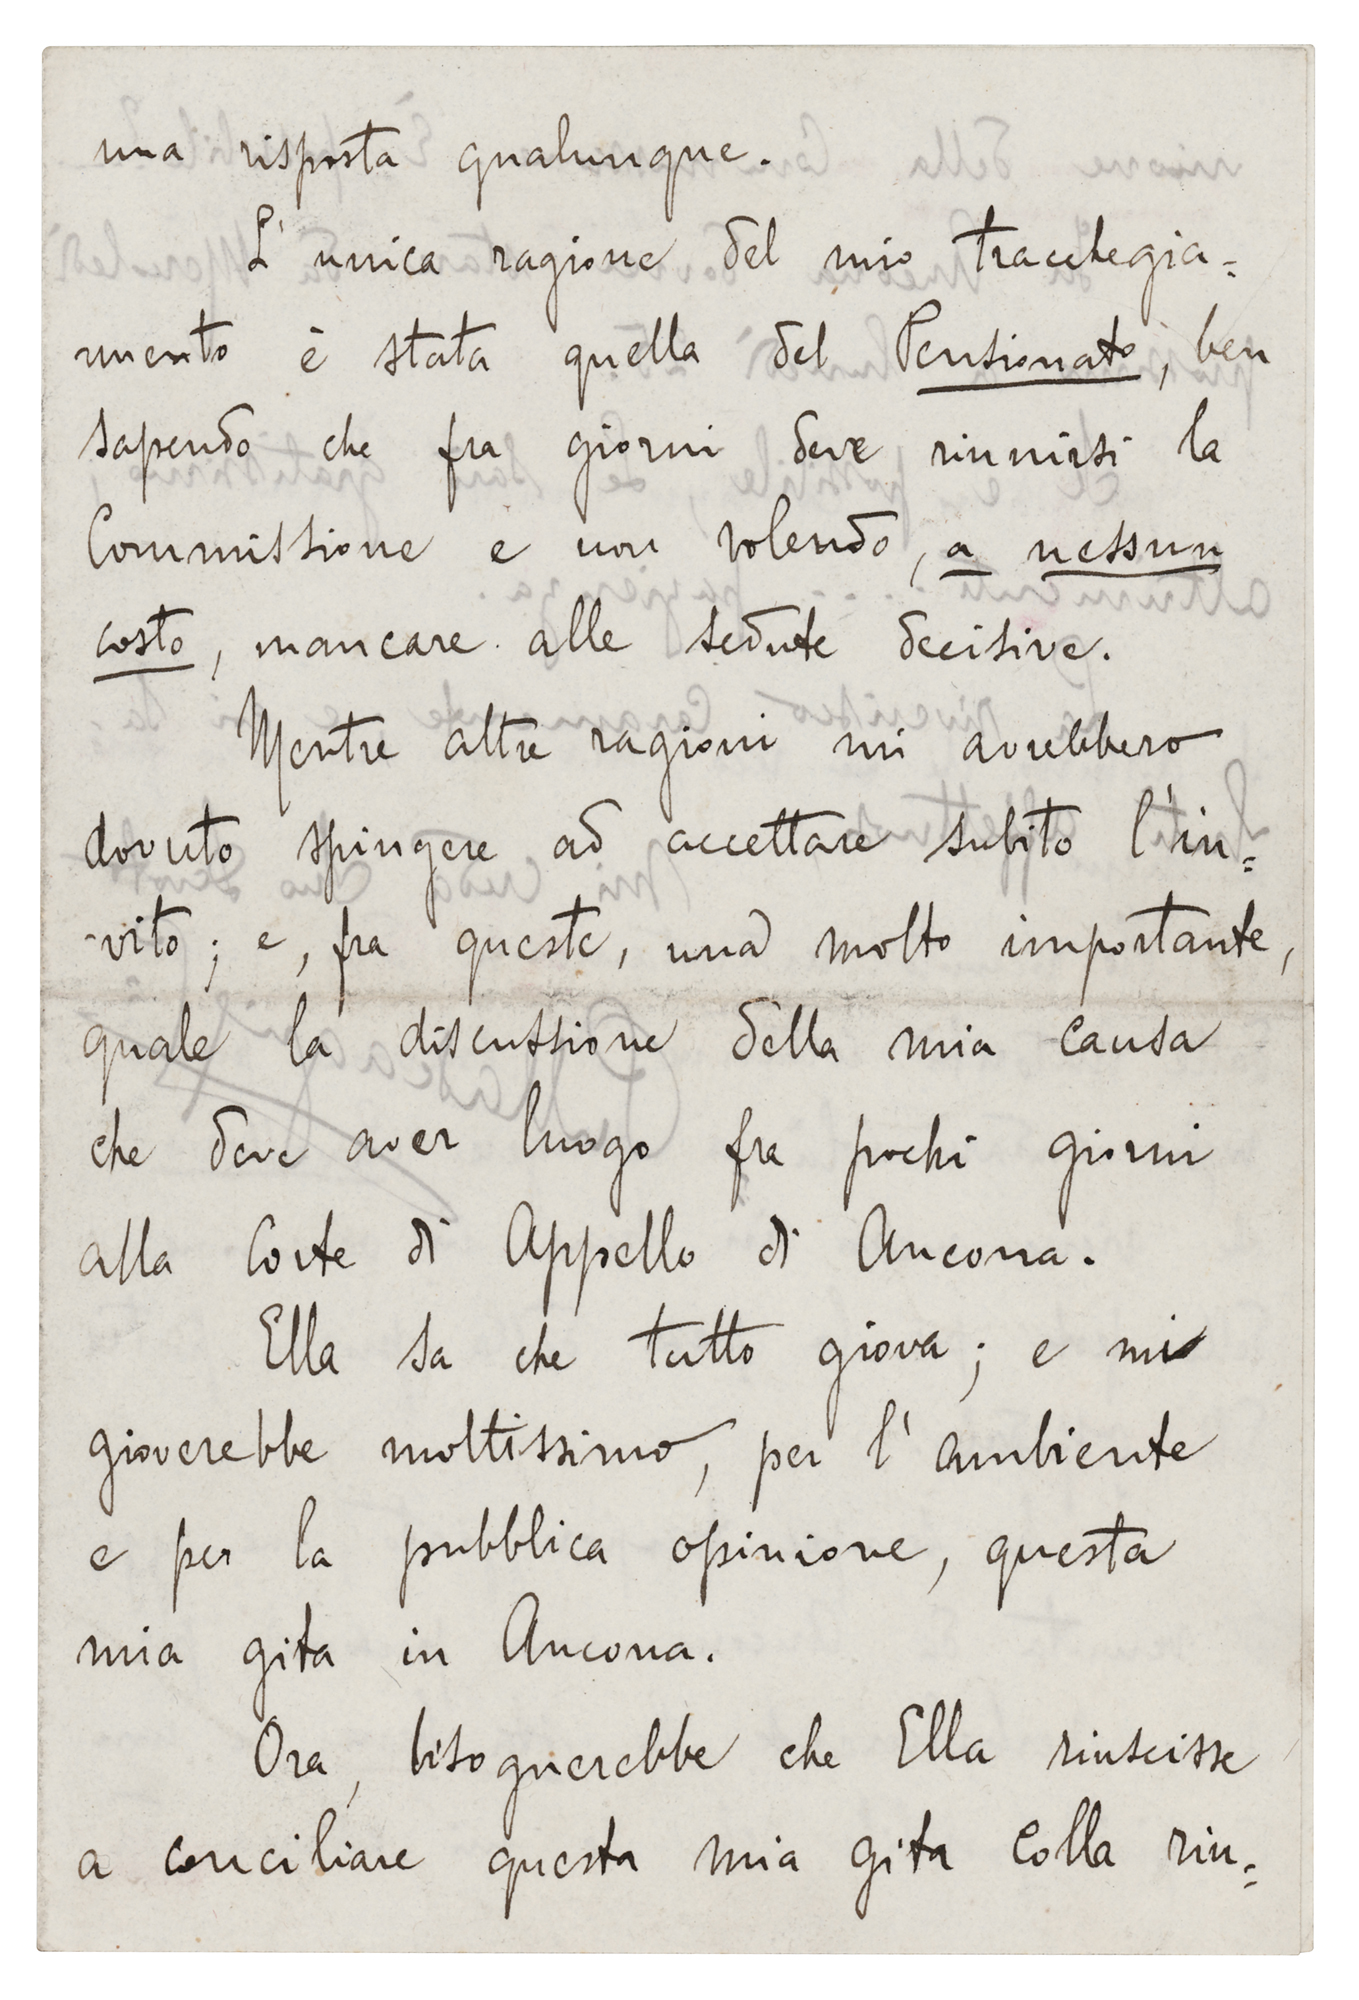 una risposta qualunque.
L'unica ragione del mio traccheggia=
mento è stata quella del Pensionato, ben
sapendo che fra giorni deve riunirsi la
Commissione e non volendo, a nessun
costo, mancare alle sedute decisive.
Mentre altre ragioni mi avrebbero
dovuto spingere ad accettare subito l'in=
vito; e, fra queste, una molto importante,
quale la discussione della mia causa
che deve aver luogo fra pochi giorni
alla Corte di Appello di Ancona.
Ella sa che tutto giova; e mi
gioverebbe moltissimo, per l'ambiente
e per la pubblica opinione, questa
mia gita in Ancona.
Ora, bisognerebbe che Ella riuscisse
a conciliare questa mia gita colla riu=